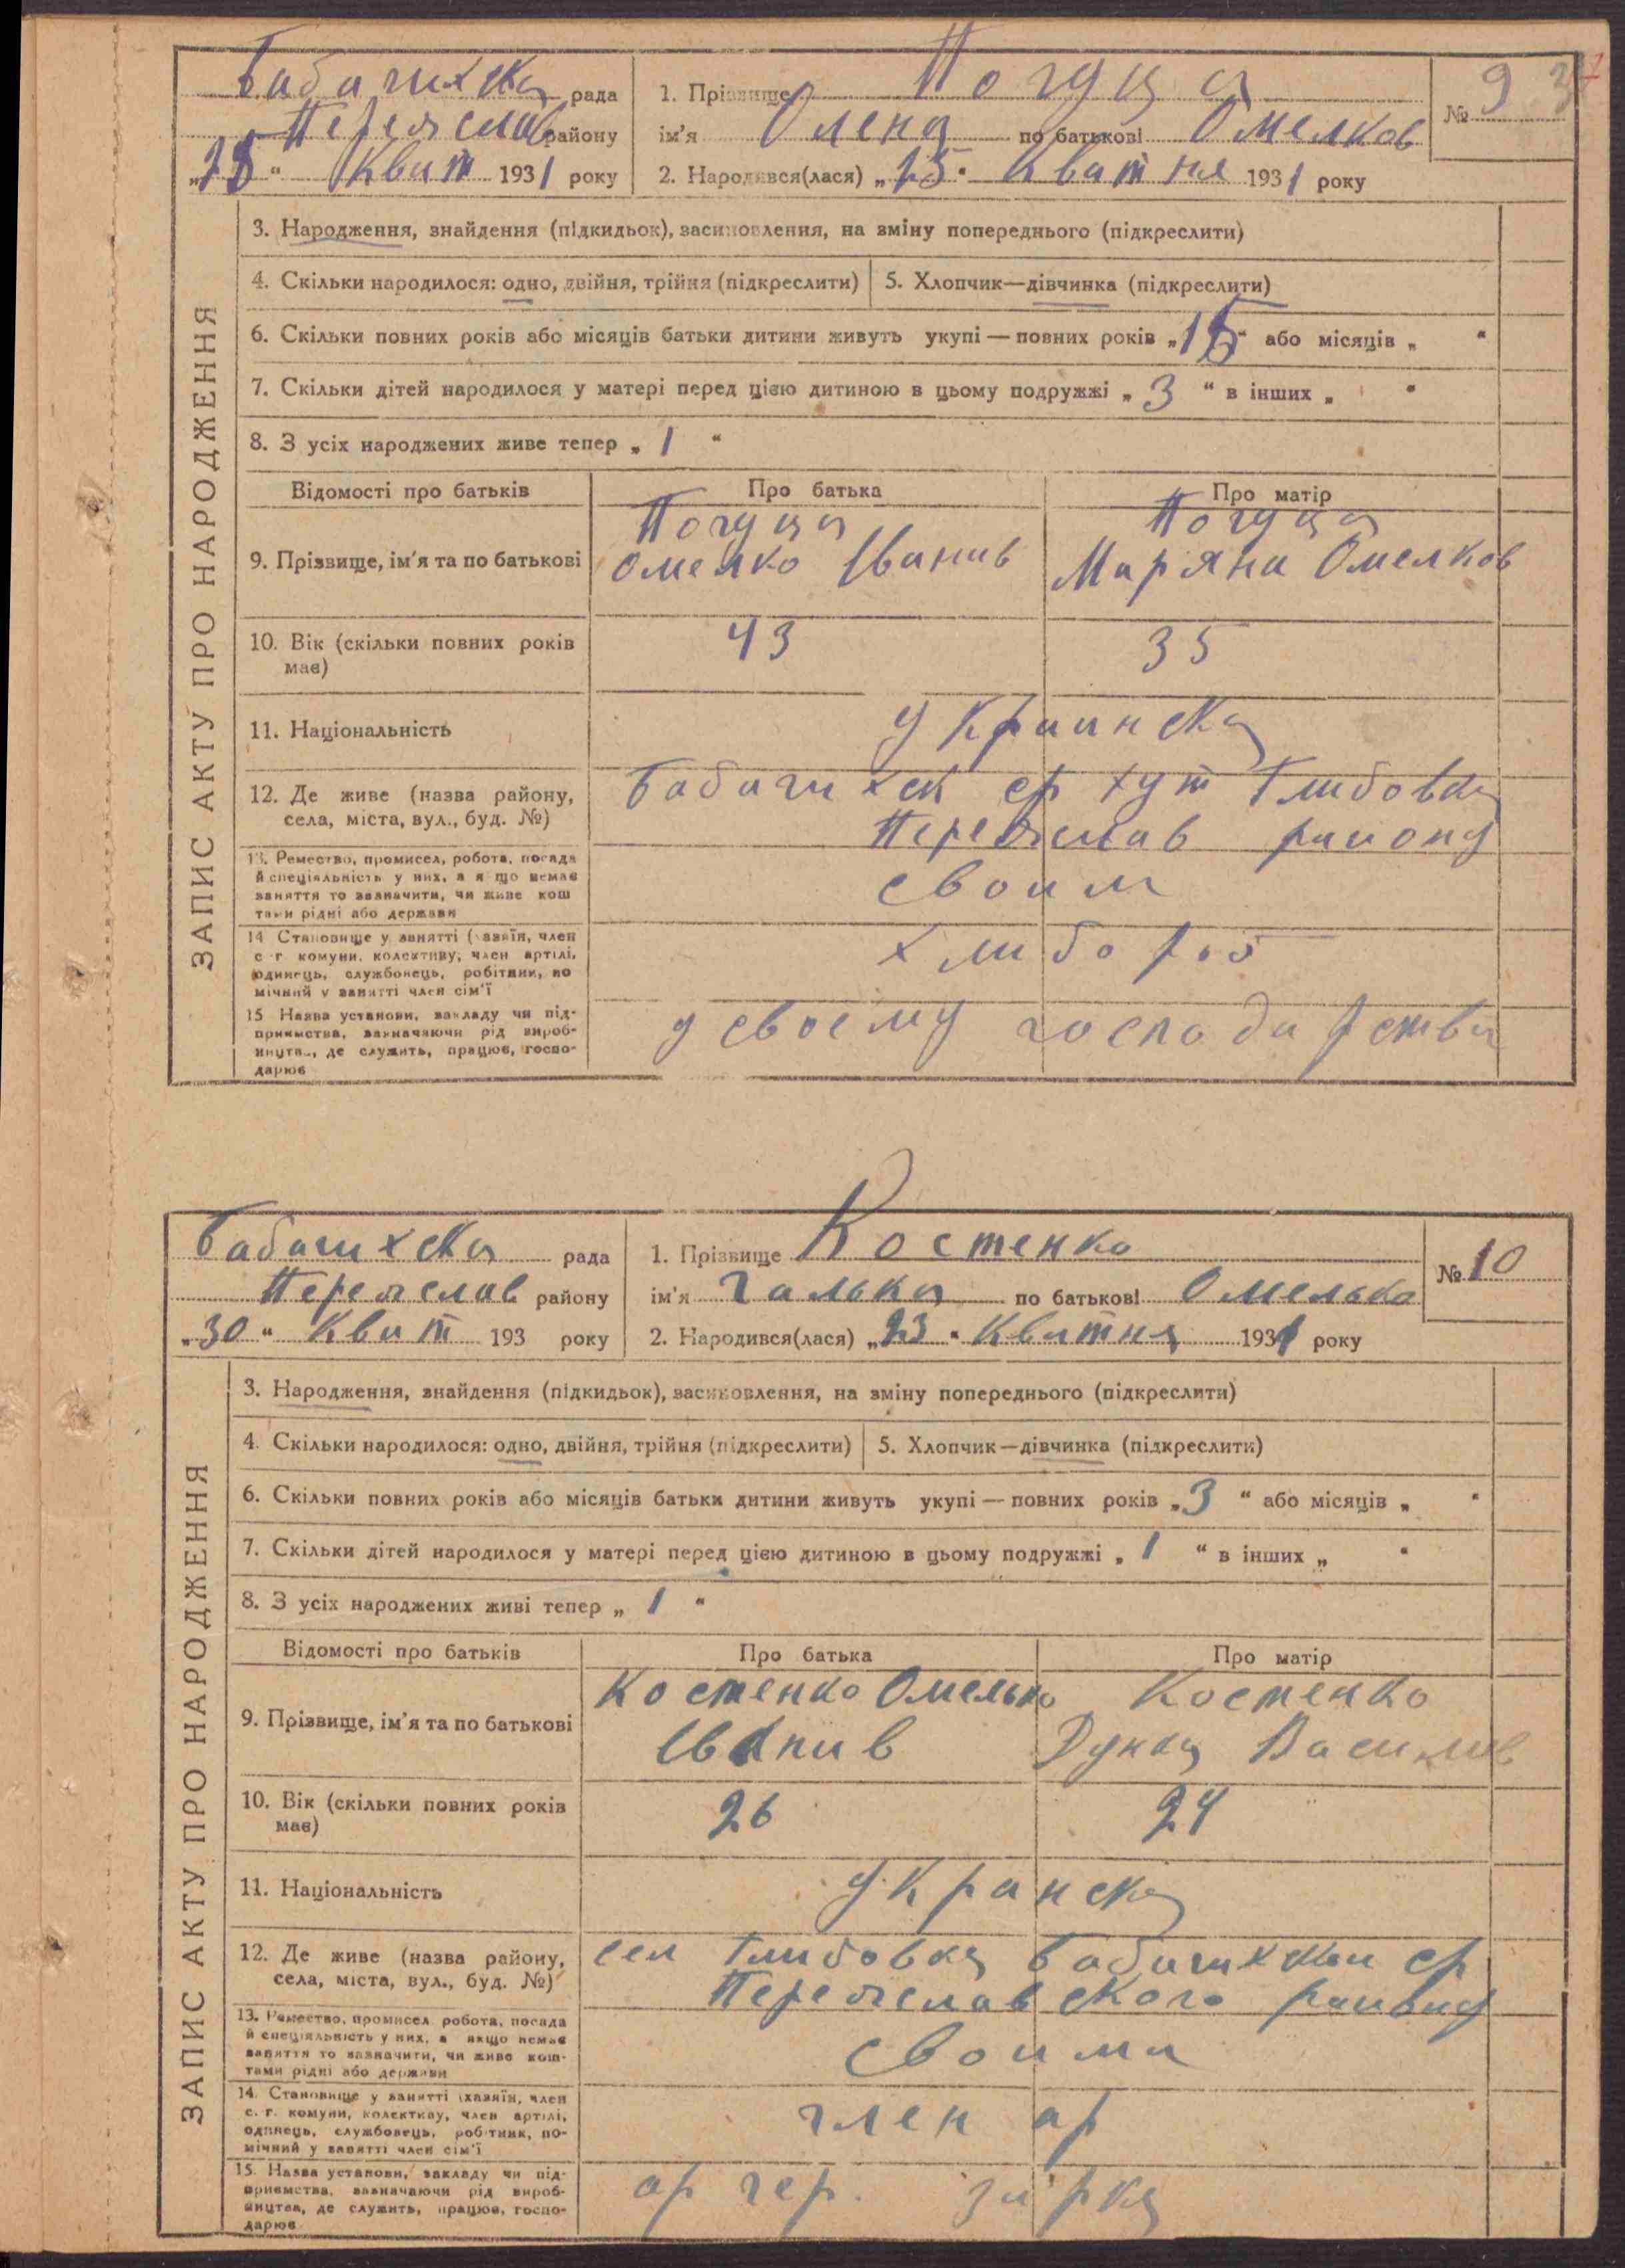 Бабачихска рада
Переяслав району
„28“ Квит 1931 року
1. Прізвище Погуца
ім'я Олена по батькові Омелков
2. Народився(лася) „25“ Квитня 1931 року
№ 9
ЗАПИС АКТУ ПРО НАРОДЖЕННЯ
3. Народження, знайдення (підкидьок), засиновлення, на зміну попереднього (підкреслити)
4. Скільки народилося: одно, двійня, трійня (підкреслити) 5. Хлопчик—дівчинка (підкреслити)
6. Скільки повних років або місяців батьки дитини живуть укупі — повних років „15“ або місяців „ “
7. Скільки дітей народилося у матері перед цією дитиною в цьому подружжі „3“ в інших „ “
8. З усіх народжених живе тепер „1“
Відомості про батьків Про батька Про матір
9. Прізвище, ім'я та по батькові
Погуца
Омелко Іванив
Погуца
Мар'яна Омелков
10. Вік (скільки повних років має) 43 35
11. Національність Украинска
12. Де живе (назва району, села, міста, вул., буд. №)
Бабачихск ср хут Глибовка
Переяслав району
13. Ремество, промисел, робота, посада
й спеціяльність у них, а я що немає
заняття то зазначити, чи живе кош
тами рідні або держави
своим
14 Становище у занятті (хазяїн, член
с г комуни, колективу, член артілі,
одинець, службовець, робітник, по
мічний у занятті член сім'ї
хлибороб
15 Назва установи, закладу чи під-
приємства, зазначаючи рід вироб-
ництва, де служить, працює, госпо-
дарює
у своєму господарстви
Бабачихска рада
Переяслав району
„30“ Квит 193 року
1. Прізвище Костенко
ім'я Галька по батькові Омелько
2. Народився(лася) „23“ Квитня 1931 року
№ 10
ЗАПИС АКТУ ПРО НАРОДЖЕННЯ
3. Народження, знайдення (підкидьок), засиновлення, на зміну попереднього (підкреслити)
4. Скільки народилося: одно, двійня, трійня (підкреслити) 5. Хлопчик—дівчинка (підкреслити)
6. Скільки повних років або місяців батьки дитини живуть укупі — повних років „3“ або місяців „ “
7. Скільки дітей народилося у матері перед цією дитиною в цьому подружжі „1“ в інших „ “
8. З усіх народжених живі тепер „1“
Відомості про батьків Про батька Про матір
9. Прізвище, ім'я та по батькові
Костенко Омелько
Іванив
Костенко
Дунка Василив
10. Вік (скільки повних років має) 26 24
11. Національність Укранска
12. Де живе (назва району, села, міста, вул., буд. №)
сел Глибовка Бабачихскои ср
Переяславского раиону
13. Ремество, промисел робота, посада
й спеціяльність у них, а якщо немає
заняття то зазначити, чи живе кош-
тами рідні або держави
своими
14. Становище у занятті (хазяїн, член
с. г. комуни, колективу, член артілі,
одинець, службовець, робітник, по-
мічний у занятті член сім'ї
член ар
15. Назва установи, закладу чи під-
приємства, зазначаючи рід вироб-
ництва, де служить, працює, госпо-
дарює
ар чер. зирка